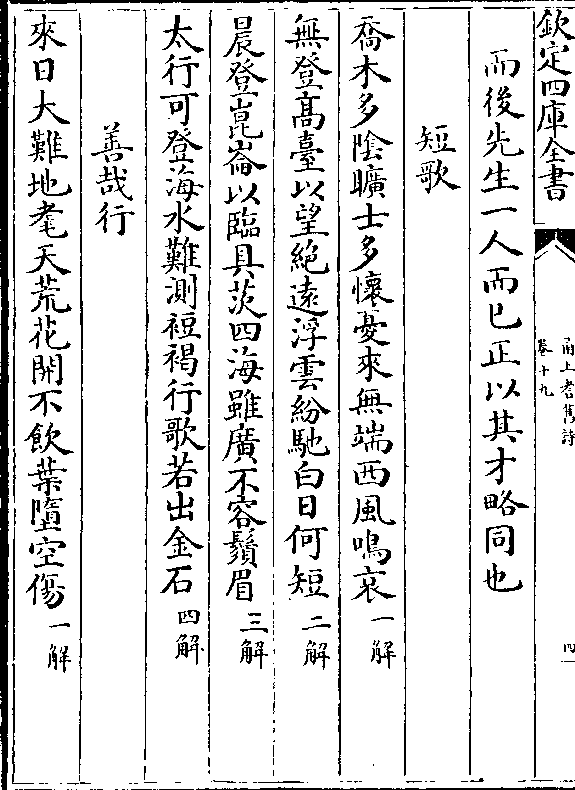 欽定四庫全書
甬上耆舊詩
卷十九
四
而後先生一人而已正以其才略同也
短歌
喬木多陰曠士多懷憂來無端西風鳴哀一解
無登高臺以望絶遠浮雲紛馳白日何短二解
晨登崑崙以臨具茨四海雖廣不容鬚眉三解
太行可登海水難測裋褐行歌若出金石四解
善哉行
來日大難地耄天荒花開不飲葉墮空傷一解